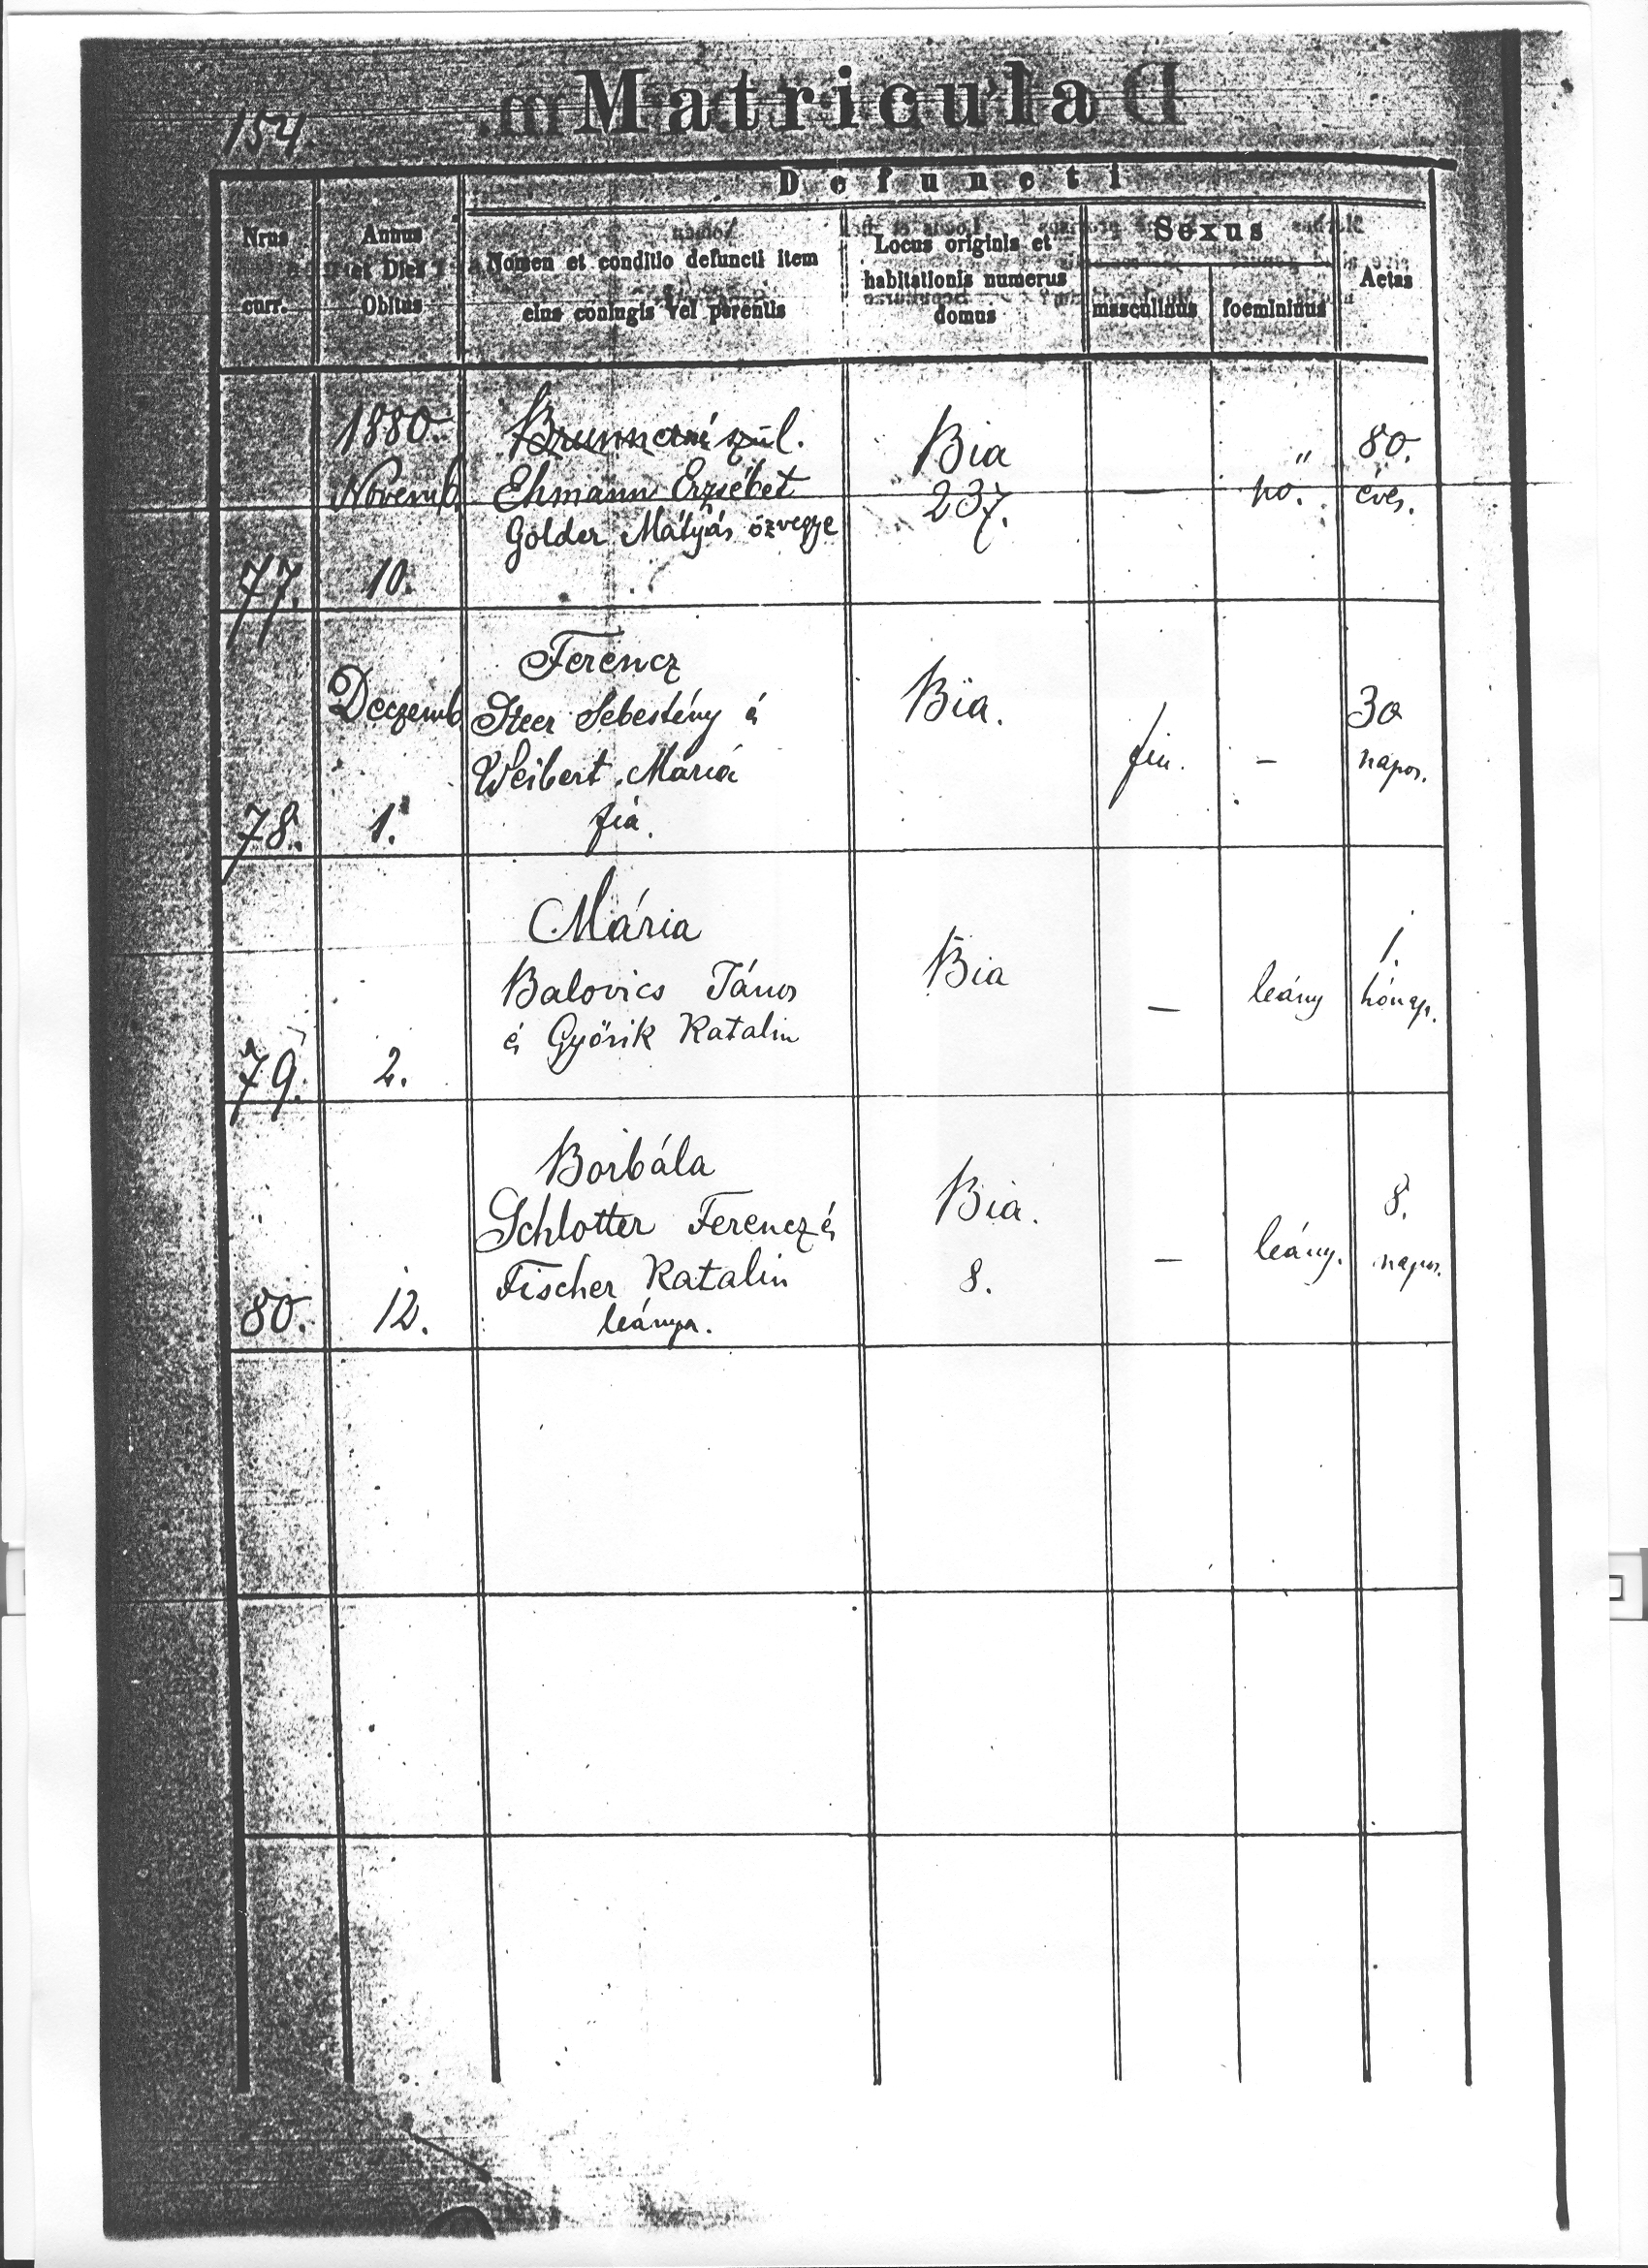 154.
Matricula
Defuncti
Nrus curr.
Annus et Dies Obitus
Nomen et conditio defuncti item eius coniugis vel parentis
Locus originis et habitationis numerus domus
Sexus
masculinus
foemininus
Aetas
1880.
Brunnerné szül.
Bia
80.
Novemb.
Ehmann Erzsébet
237.
—
nő.
éves.
Golder Mátyás özvegye
77.
10.
Ferencz
Deczemb
Steer Sebestény é
Bia.
30
Weibert Mária
fiu.
—
napos.
78.
1.
fia.
Mária
1.
Balovics János
Bia
—
leány
hónap.
é Győrik Katalin
79.
2.
Borbála
Schlotter Ferencz é
Bia.
8.
Fischer Katalin
8.
—
leány.
napos.
80.
12.
leánya.